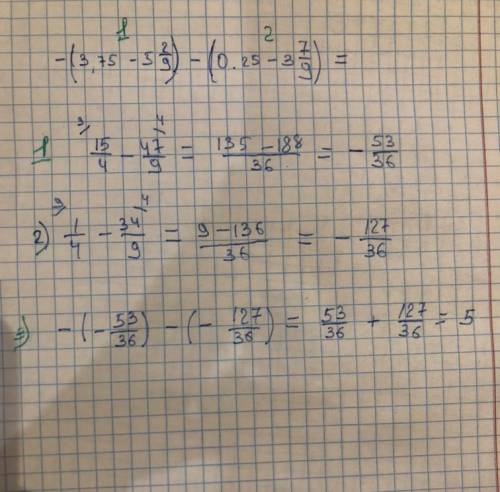 1 2
-(3,75 - 5 2/9) - (0.25 - 3 7/9) =
1 9/ 15/4 - 4/ 47/9 = (135 - 188)/36 = - 53/36
2) 9/ 1/4 - 4/ 34/9 = (9 - 136)/36 = - 127/36
=) -(- 53/36) - (- 127/36) = 53/36 + 127/36 = 5